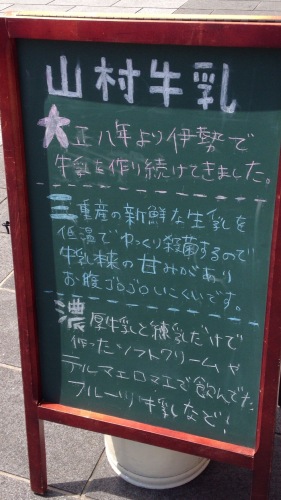 山村牛乳
大正八年より伊勢で
牛乳を作り続けてきました。
三重産の新鮮な生乳を
低温でゆっくり殺菌するので
牛乳本来の甘みがあり
お腹ゴロゴロいこくいです。
濃厚牛乳と練乳だけで
作ったソフトクリームや
テルマエロマエで飲んでた
フルーツ牛乳など!